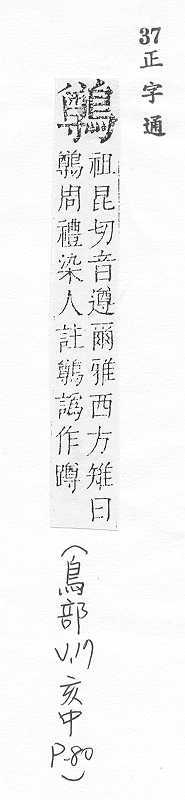 37 正字通
鷷
祖昆切音遵爾雅西方雉曰
鷷周禮染人註鷷譌作蹲
(鳥部 V.17 亥中 P.80)